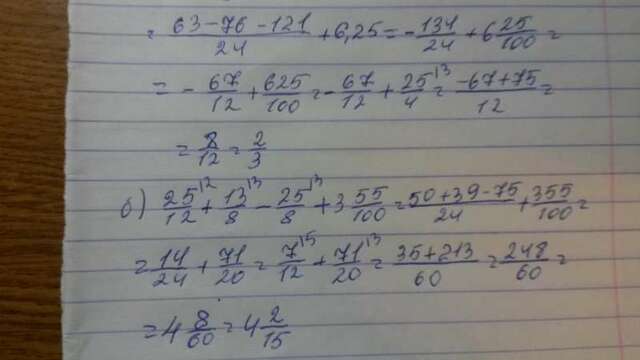 = (63-76-121)/24 + 6,25 = -134/24 + 6 25/100 =
= -67/12 + 625/100 = -67/12 + 25/4 ^(13) = (-67+75)/12 =
= 8/12 = 2/3
б) 25/12 ^(12) + 13/8 ^(13) - 25/8 ^(13) + 3 55/100 = (50+39-75)/24 + 355/100 =
= 14/24 + 71/20 = 7/12 ^(15) + 71/20 ^(13) = (35+213)/60 = 248/60 =
= 4 8/60 = 4 2/15